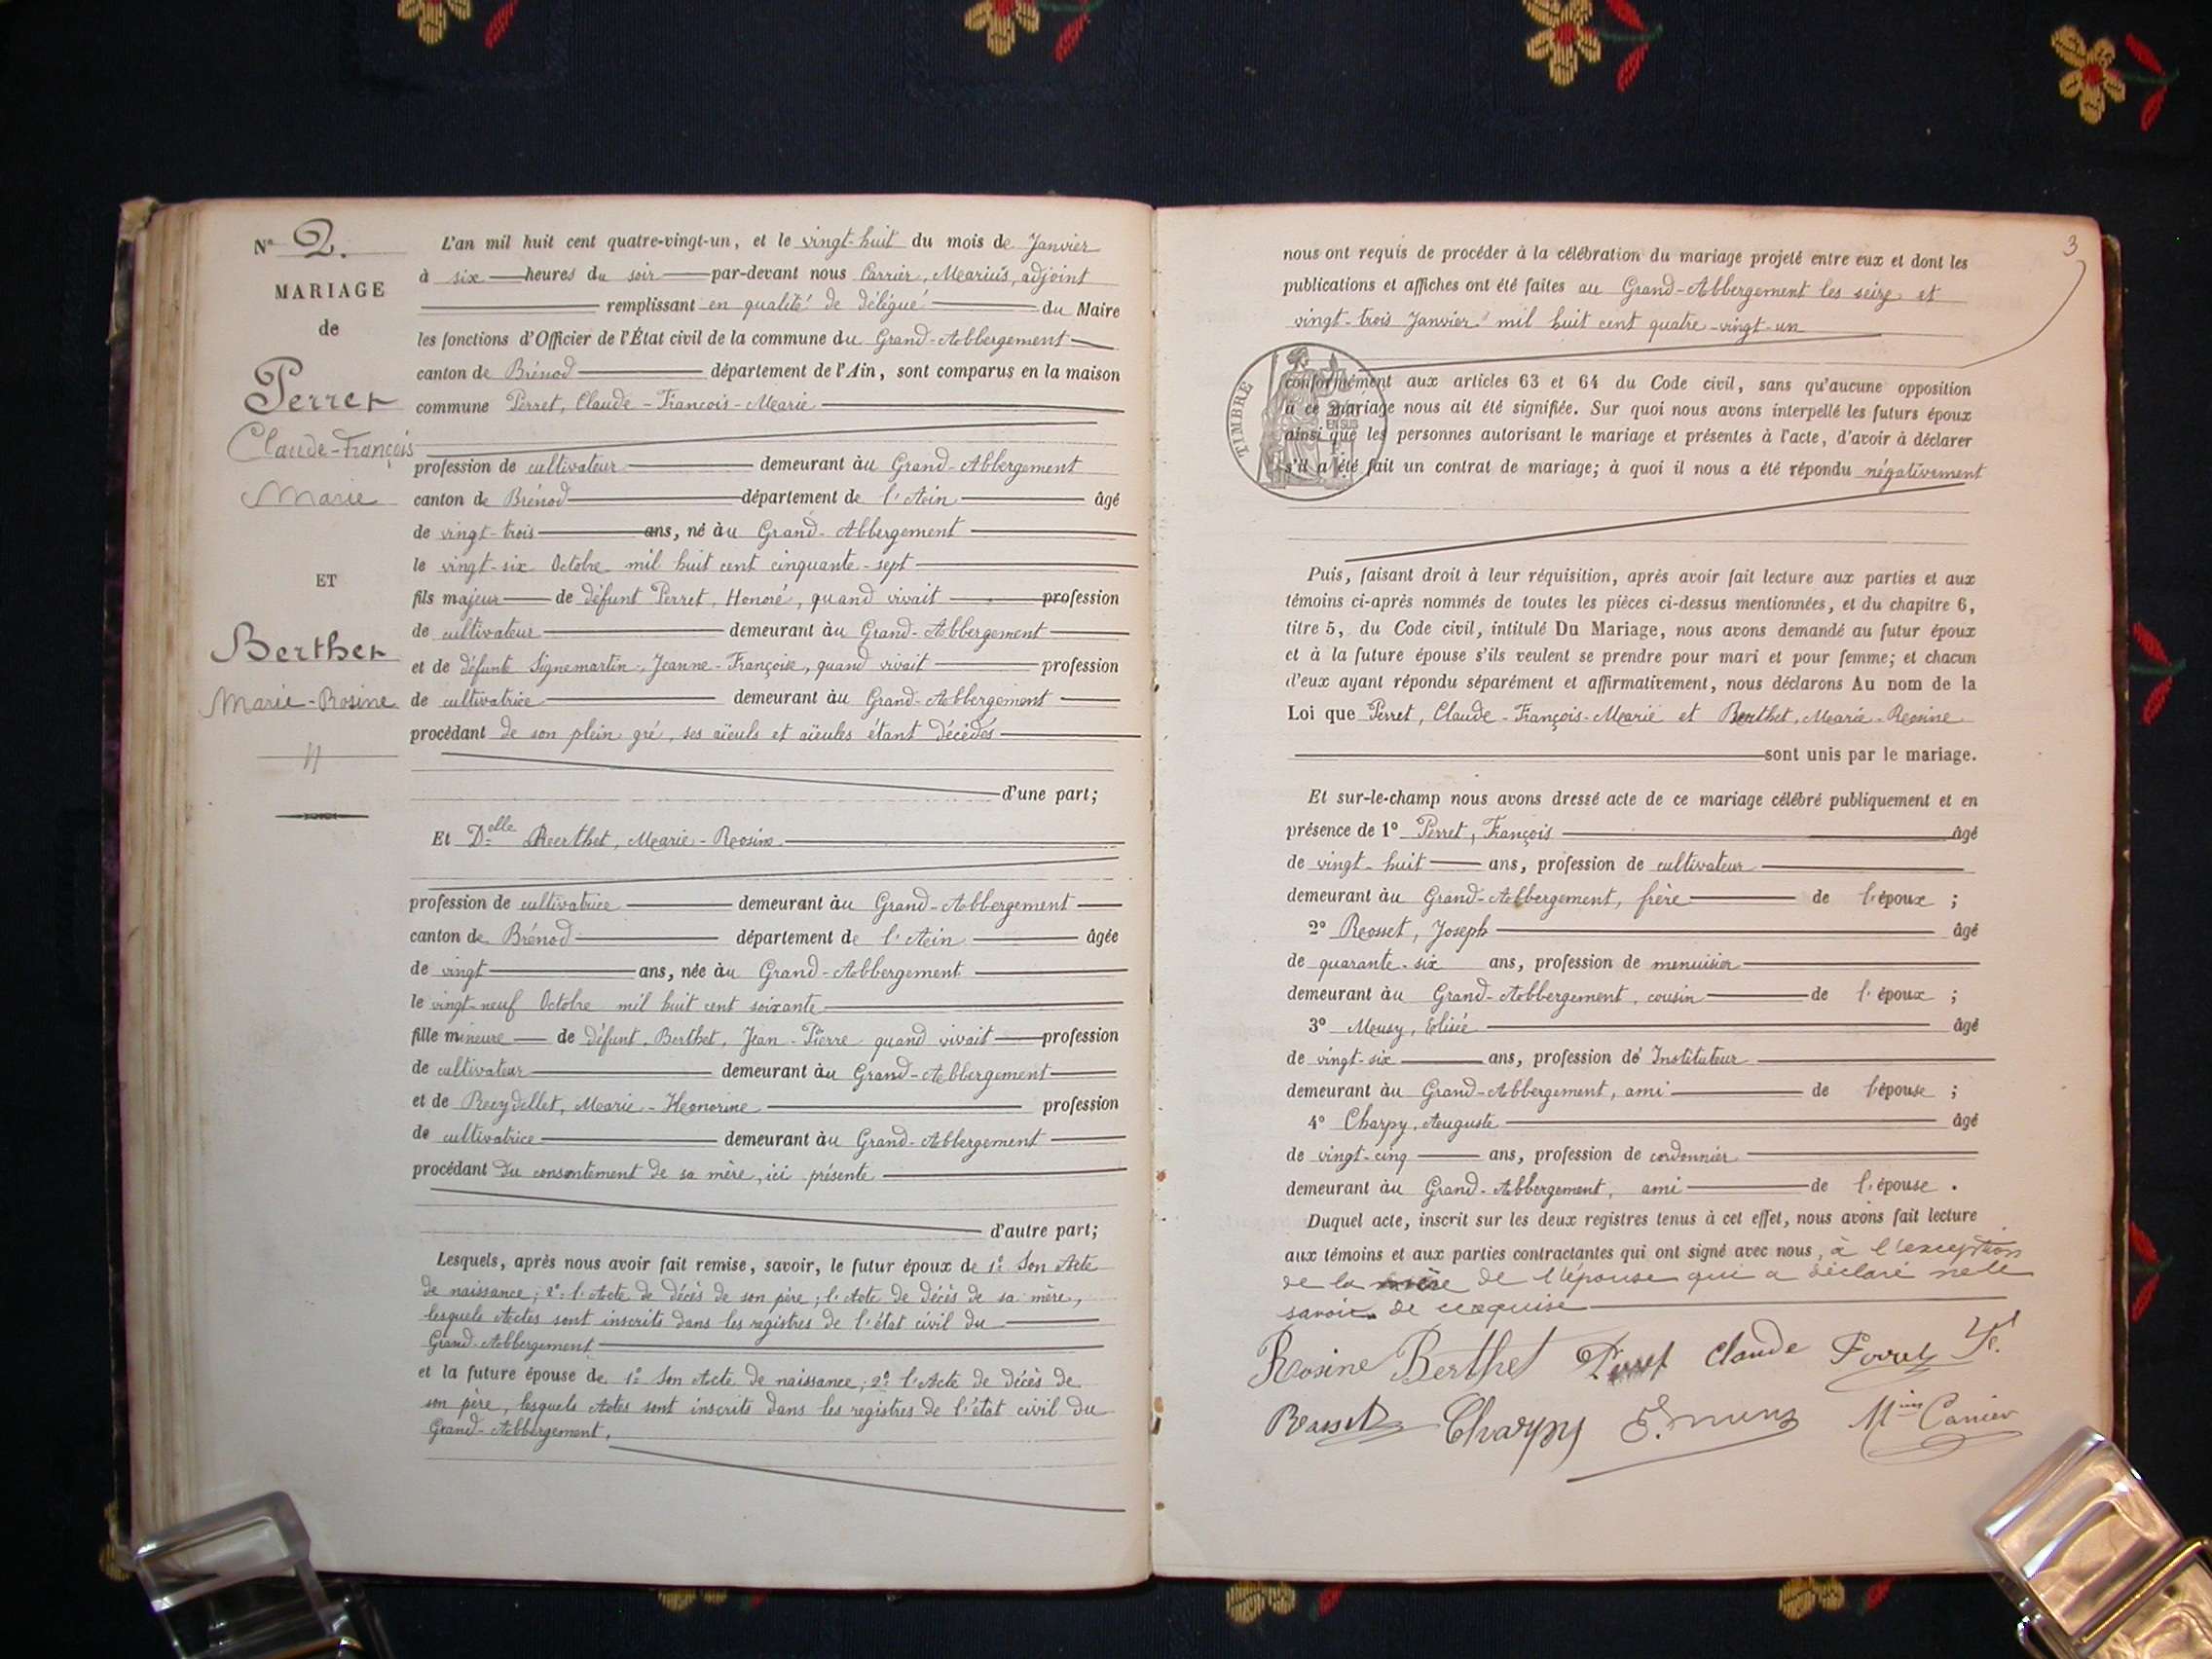 Nº 2.
MARIAGE
de
Perret
Claude-François
Marie
ET
Berthet
Marie-Rosine
L'an mil huit cent quatre-vingt-un, et le vingt-huit du mois de Janvier
à six heures du soir par-devant nous Carrier, Marius, adjoint
remplissant en qualité de délégué du Maire
les fonctions d'Officier de l'État civil de la commune du Grand-Abbergement
canton de Brénod département de l'Ain, sont comparus en la maison
commune Perret, Claude-François-Marie
profession de cultivateur demeurant àu Grand-Abbergement
canton de Brénod département de l'Ain âgé
de vingt-trois ans, né àu Grand-Abbergement
le vingt-six Octobre mil huit cent cinquante-sept
fils majeur de défunt Perret, Honoré, quand vivait profession
de cultivateur demeurant àu Grand-Abbergement
et de défunte Signemartin, Jeanne-Françoise, quand vivait profession
de cultivatrice demeurant àu Grand-Abbergement
procédant de son plein gré, ses aïeuls et aïeules étant décédés
d'une part;
Et Delle Berthet, Marie-Rosine
profession de cultivatrice demeurant àu Grand-Abbergement
canton de Brénod département de l'Ain âgée
de vingt ans, née àu Grand-Abbergement
le vingt-neuf Octobre mil huit cent soixante
fille mineure de défunt Berthet, Jean-Pierre quand vivait profession
de cultivateur demeurant àu Grand-Abbergement
et de Reydellet, Marie-Honorine profession
de cultivatrice demeurant àu Grand-Abbergement
procédant du consentement de sa mère, ici présente
d'autre part;
Lesquels, après nous avoir fait remise, savoir, le futur époux de 1º Son Acte
de naissance; 2º l'Acte de décès de son père; l'Acte de décès de sa mère,
lesquels Actes sont inscrits dans les registres de l'état civil du
Grand-Abbergement
et la future épouse de 1º Son Acte de naissance; 2º l'Acte de décès de
son père, lesquels Actes sont inscrits dans les registres de l'état civil du
Grand-Abbergement.
3
nous ont requis de procéder à la célébration du mariage projeté entre eux et dont les
publications et affiches ont été faites au Grand-Abbergement les seize et
vingt-trois Janvier mil huit cent quatre-vingt-un
TIMBRE
EN SUS
conformément aux articles 63 et 64 du Code civil, sans qu'aucune opposition
à ce mariage nous ait été signifiée. Sur quoi nous avons interpellé les futurs époux
ainsi que les personnes autorisant le mariage et présentes à l'acte, d'avoir à déclarer
s'il a été fait un contrat de mariage; à quoi il nous a été répondu négativement
Puis, faisant droit à leur réquisition, après avoir fait lecture aux parties et aux
témoins ci-après nommés de toutes les pièces ci-dessus mentionnées, et du chapitre 6,
titre 5, du Code civil, intitulé Du Mariage, nous avons demandé au futur époux
et à la future épouse s'ils veulent se prendre pour mari et pour femme; et chacun
d'eux ayant répondu séparément et affirmativement, nous déclarons Au nom de la
Loi que Perret, Claude-François-Marie et Berthet, Marie-Rosine
sont unis par le mariage.
Et sur-le-champ nous avons dressé acte de ce mariage célébré publiquement et en
présence de 1º Perret, François âgé
de vingt-huit ans, profession de cultivateur
demeurant àu Grand-Abbergement, frère de l'époux ;
2º Rosset, Joseph âgé
de quarante-six ans, profession de menuisier
demeurant àu Grand-Abbergement, cousin de l'époux ;
3º Elisée âgé
de vingt-six ans, profession de Instituteur
demeurant àu Grand-Abbergement, ami de l'épouse ;
4º Charpy, Auguste âgé
de vingt-cinq ans, profession de cordonnier
demeurant àu Grand-Abbergement, ami de l'épouse .
Duquel acte, inscrit sur les deux registres tenus à cet effet, nous avons fait lecture
aux témoins et aux parties contractantes qui ont signé avec nous, à l'exception
de la mère de l'épouse qui a déclaré ne le
savoir de ce requise
Rosine Berthet Perret Claude Perret
Rosset Charpy Carrier